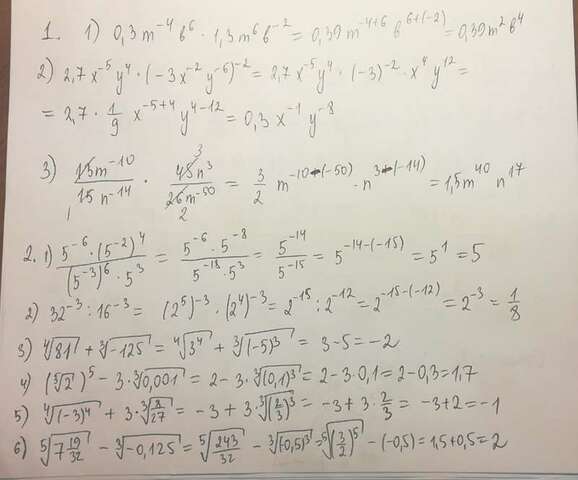 1. 1) 0,3 m⁻⁴ b⁶ · 1,3 m⁶ b⁻² = 0,39 m⁻⁴⁺⁶ b⁶⁺⁽⁻²⁾ = 0,39 m² b⁴
2) 2,7 x⁻⁵ y⁴ · (-3x⁻² y⁻⁶)⁻² = 2,7 x⁻⁵ y⁴ · (-3)⁻² · x⁴ y¹² =
= 2,7 · 1/9 x⁻⁵⁺⁴ y⁴⁻¹² = 0,3 x⁻¹ y⁻⁸
3) 13m⁻¹⁰/15n⁻¹⁴ 1 · 45n³/26m⁻⁵⁰ 3 2 = 3/2 m⁻¹⁰⁻⁽⁻⁵⁰⁾ · n³⁻⁽⁻¹⁴⁾ = 1,5m⁴⁰ n¹⁷
2. 1) 5⁻⁶ · (5⁻²)⁴/(5⁻³)⁶ · 5³ = 5⁻⁶ · 5⁻⁸/5⁻¹⁸ · 5³ = 5⁻¹⁴/5⁻¹⁵ = 5⁻¹⁴⁻⁽⁻¹⁵⁾ = 5¹ = 5
2) 32⁻³ : 16⁻³ = (2⁵)⁻³ · (2⁴)⁻³ = 2⁻¹⁵ : 2⁻¹² = 2⁻¹⁵⁻⁽⁻¹²⁾ = 2⁻³ = 1/8
3) ⁴√81 + ³√-125 = ⁴√3⁴ + ³√(-5)³ = 3 - 5 = -2
4) (⁵√2)⁵ - 3 · ³√0,001 = 2 - 3 · ³√(0,1)³ = 2 - 3 · 0,1 = 2 - 0,3 = 1,7
5) ⁴√(-3)⁴ + 3 · ³√8/27 = -3 + 3 · ³√(2/3)³ = -3 + 3 · 2/3 = -3 + 2 = -1
6) ⁵√7 19/32 - ³√-0,125 = ⁵√243/32 - ³√(-0,5)³ = ⁵√(3/2)⁵ - (-0,5) = 1,5 + 0,5 = 2